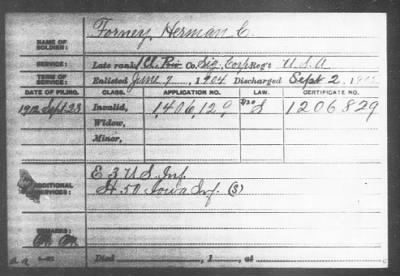 NAME OF SOLDIER: Forney, Herman C.
SERVICE: Late rank 1 Cl. Pvt Co. Sig. Corp Reg't U.S.A
TERM OF SERVICE: Enlisted June 7, 1904 Discharged Sept 2, 19
DATE OF FILING. CLASS. APPLICATION NO. LAW. CERTIFICATE NO.
1912 Sept. 23 Invalid, 1,406,129 S 1206829
Widow,
Minor,
ADDITIONAL SERVICES: E 3 U.S. Inf.
H. 50 Iowa Inf. (S)
REMARKS:
Died , 1 , at